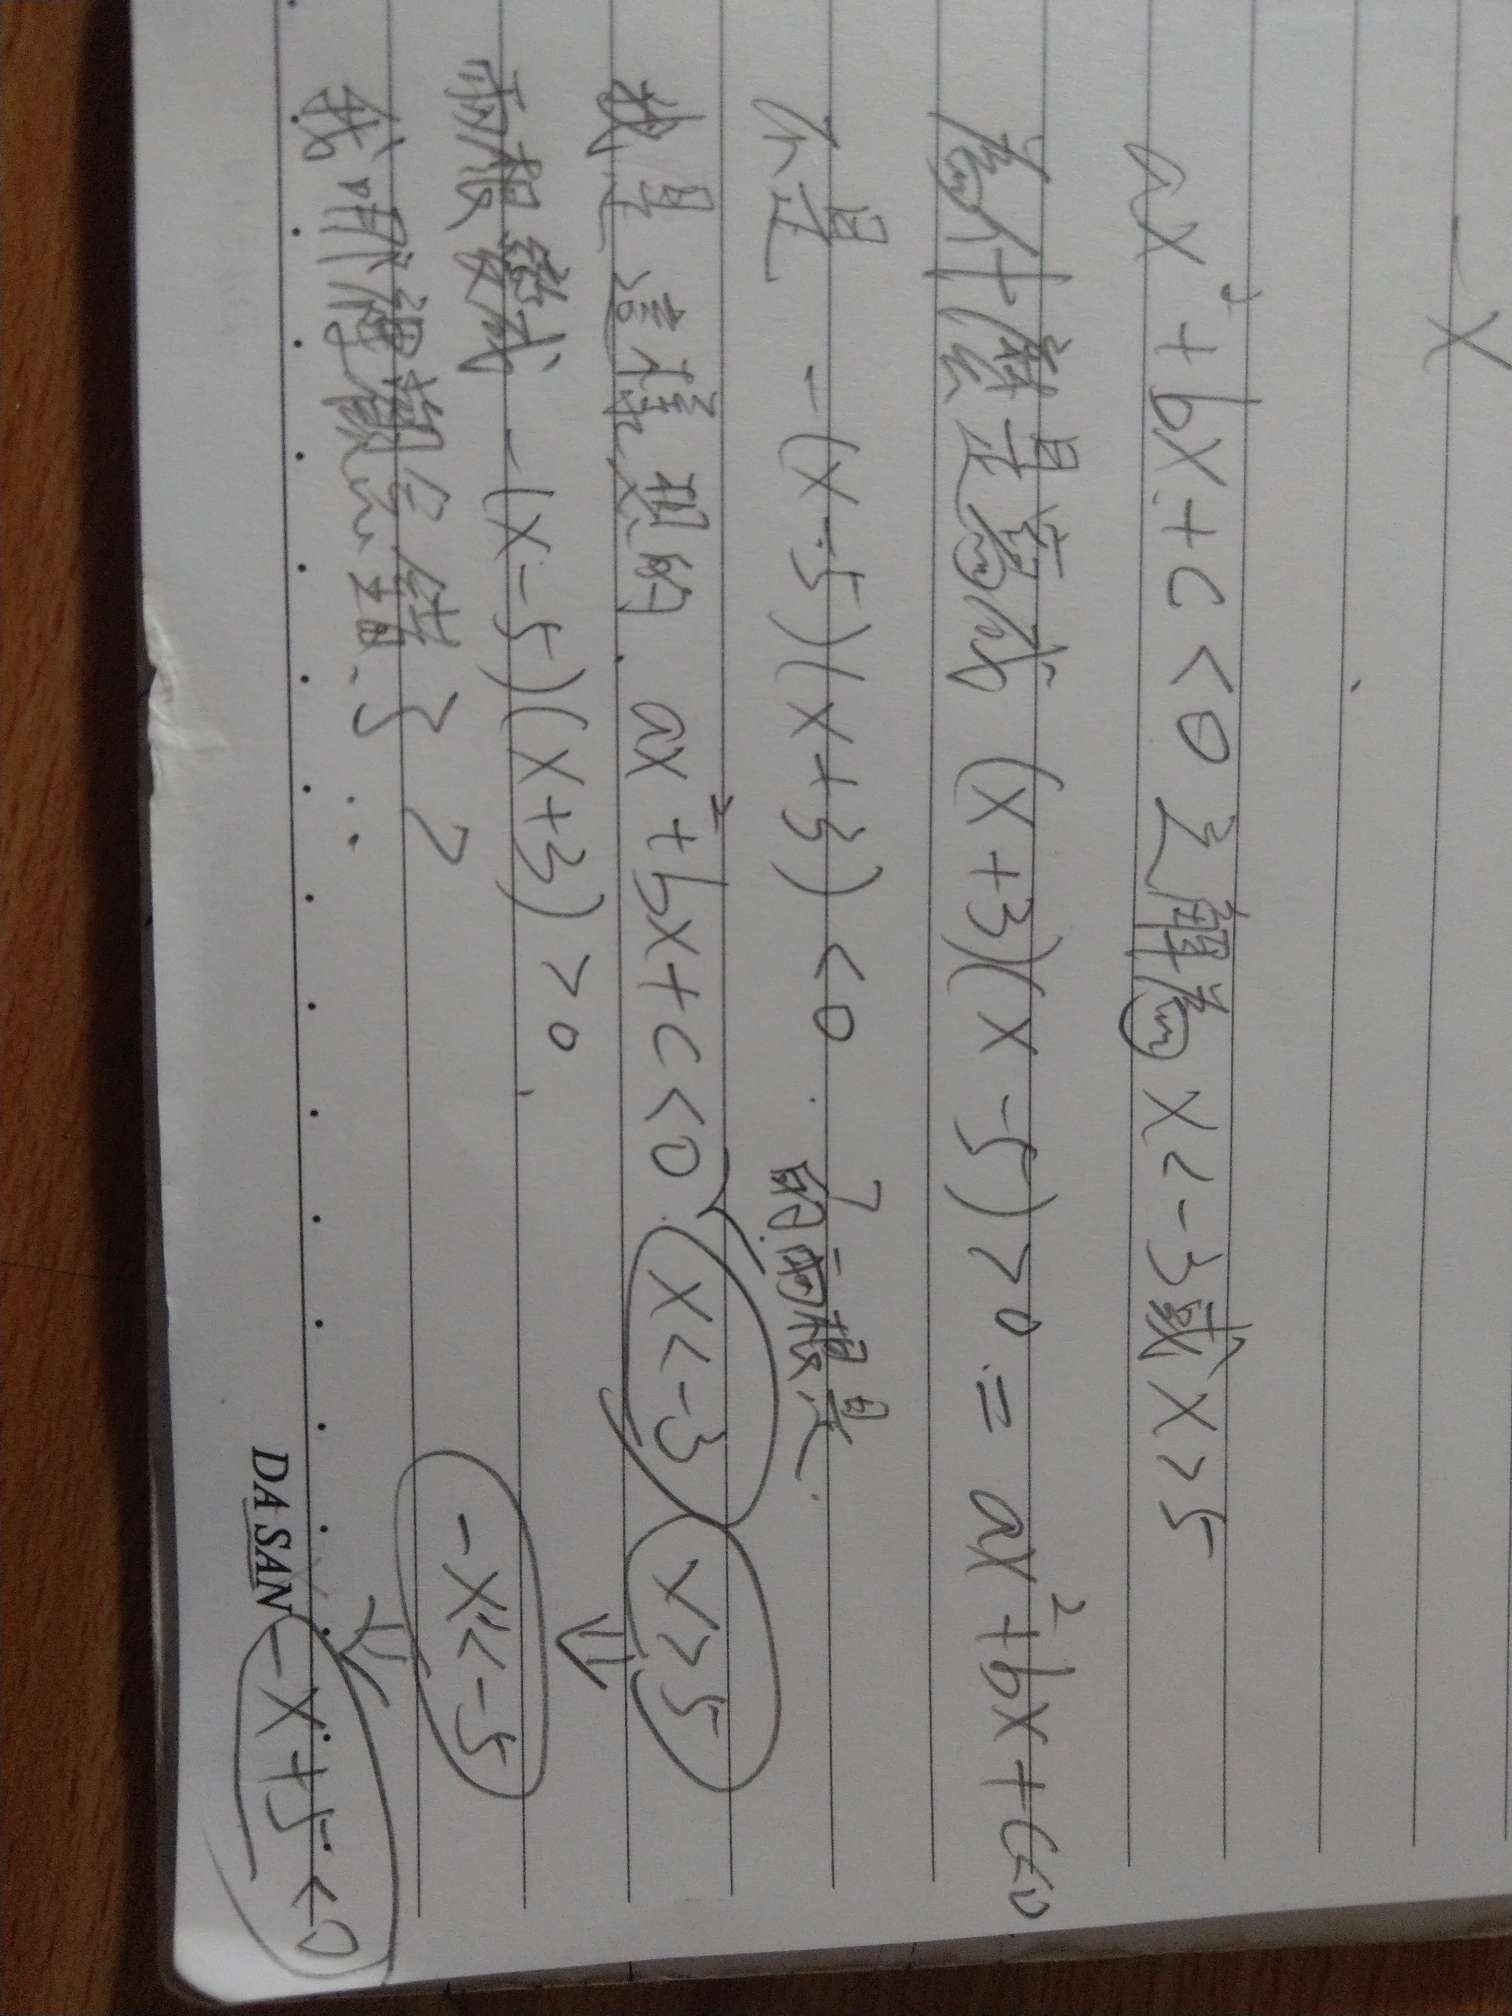 x
ax²+bx+c<0之解為x<-3或x>5
為什麼是寫成 (x+3)(x-5)>0 = ax²+bx+c<0
不是 -(x-5)(x+3)<0. ?
的兩根是.
我是這樣想的. ax²+bx+c<0. x<-3 x>5
兩根變成 -(x-5)(x+3)>0. -x<-5
我哪裡觀念錯了?
-x+5<0
DASAN